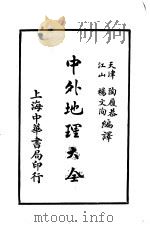 天津 陶履恭
江山 楊文洵
編譯
中外地理大全
上海中華書局印行
http://www.tooopen.com